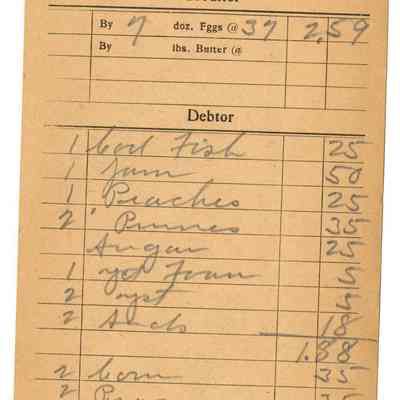 By 7 doz. Eggs @ 37 2,59
By lbs. Butter @
Debtor
1 Cod Fish 25
1 Jam 50
1 Peaches 25
2 Prunes 35
Sugar 25
1 5
2 5
2 18
1.88
2 Corn 35
2 35